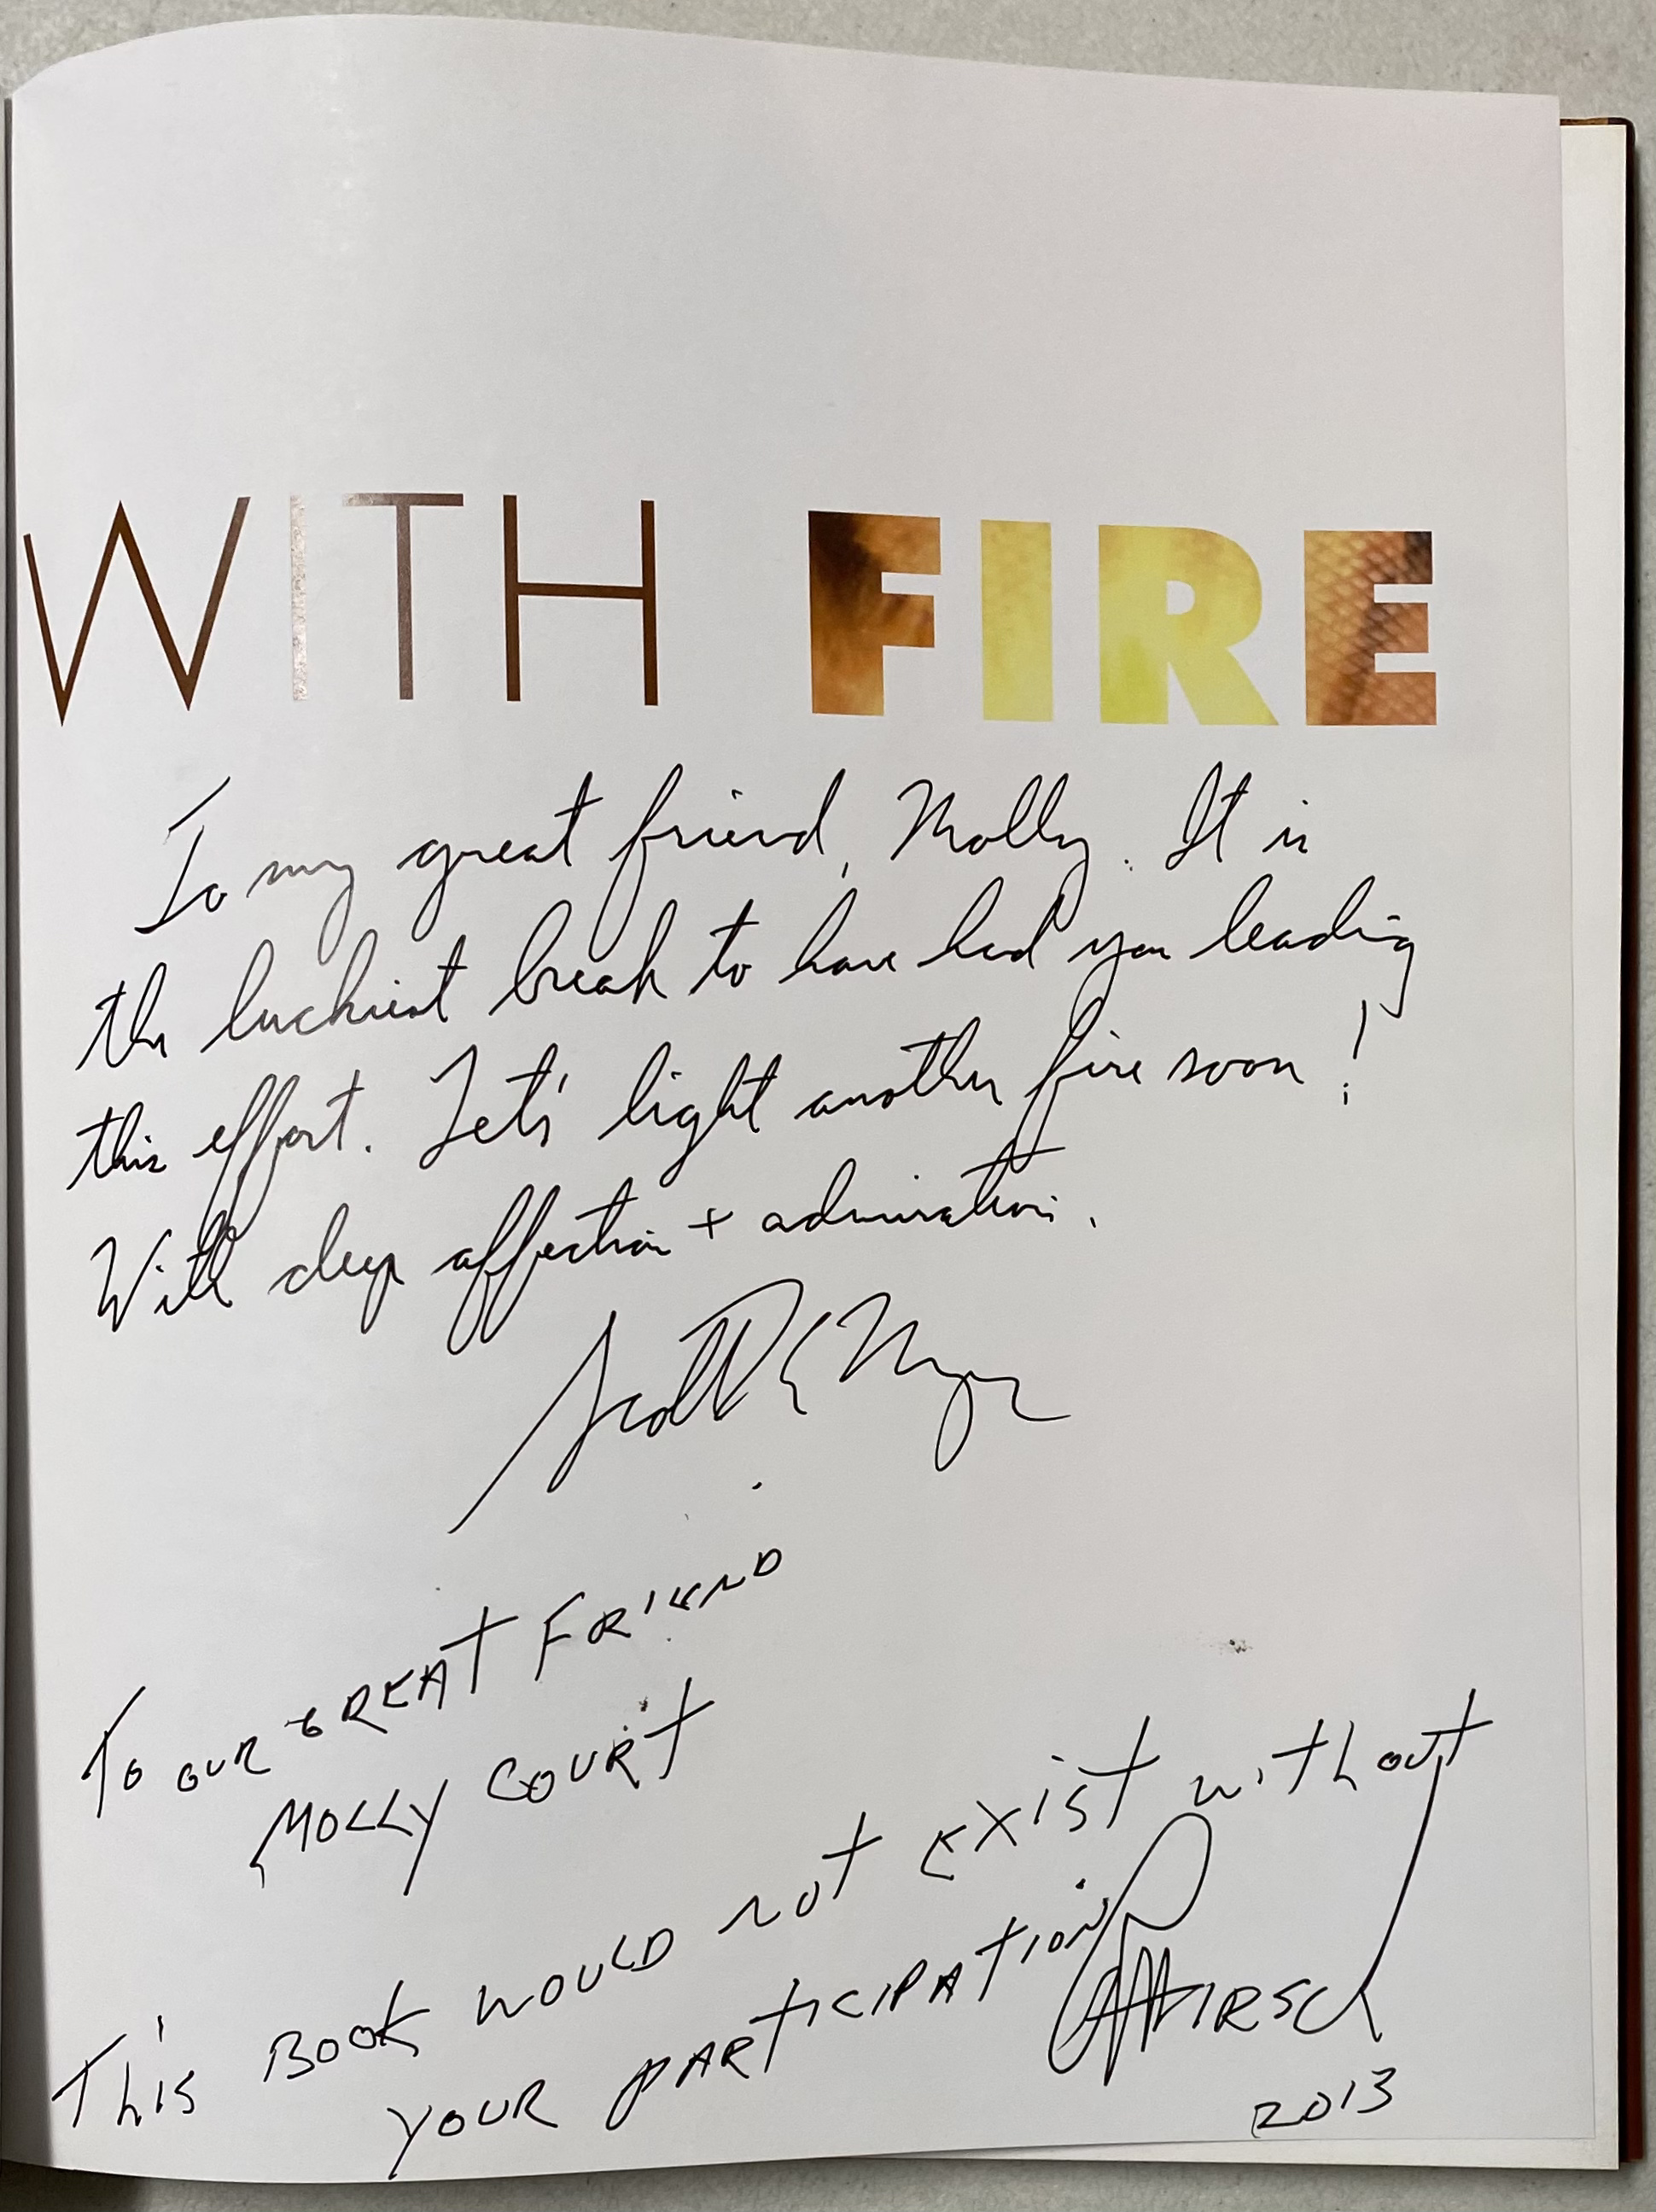 WITH FIRE
To my great friend, Molly. It is
the luckiest break to have had you leading
this effort. Let's light another fire soon!
With deep affection + admiration.
Scott
TO OUR GREAT FRIEND
MOLLY COURT
THIS BOOK WOULD NOT EXIST without
YOUR PARTICIPATION
HIRSCH
2013